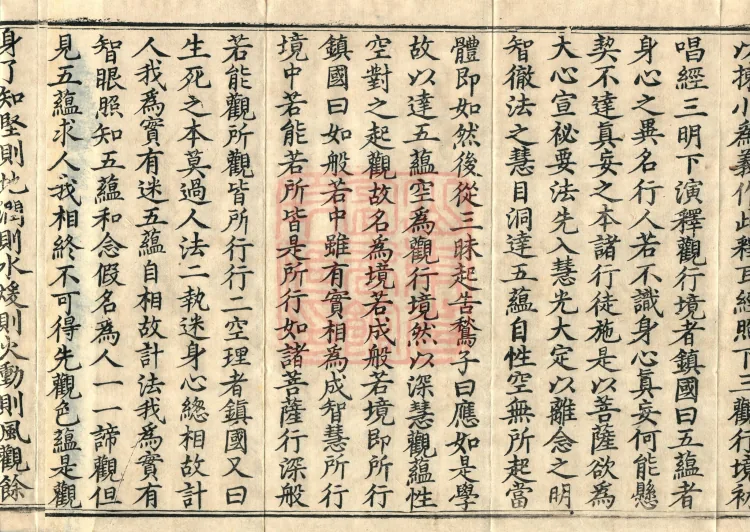 唱經三明下演釋觀行境者鎮國曰五蘊者
身心之異名行人若不識身心眞妄何能懸
契不達眞妄之本諸行徒施是以菩薩欲爲
大心宣祕要法先入慧光大定以離念之明
智徹法之慧目洞達五蘊自性空無所起當
體即如然後從三昧起告鶖子曰應如是學
故以達五蘊空爲觀行境然以深慧觀蘊性
空對之起觀故名爲境若成般若境即所行
鎮國曰如般若中雖有實相爲成智慧所行
境中若能若所皆是所行如諸菩薩行深般
若能觀所觀皆所行行二空理者鎮國又曰
生死之本莫過人法二執迷身心緫相故計
人我爲實有迷五蘊自相故計法我爲實有
智眼照知五蘊和念假名爲人一一諦觀但
見五蘊求人我相終不可得先觀色蘊是觀
身了知堅則地潤則水煖則火動則風觀餘